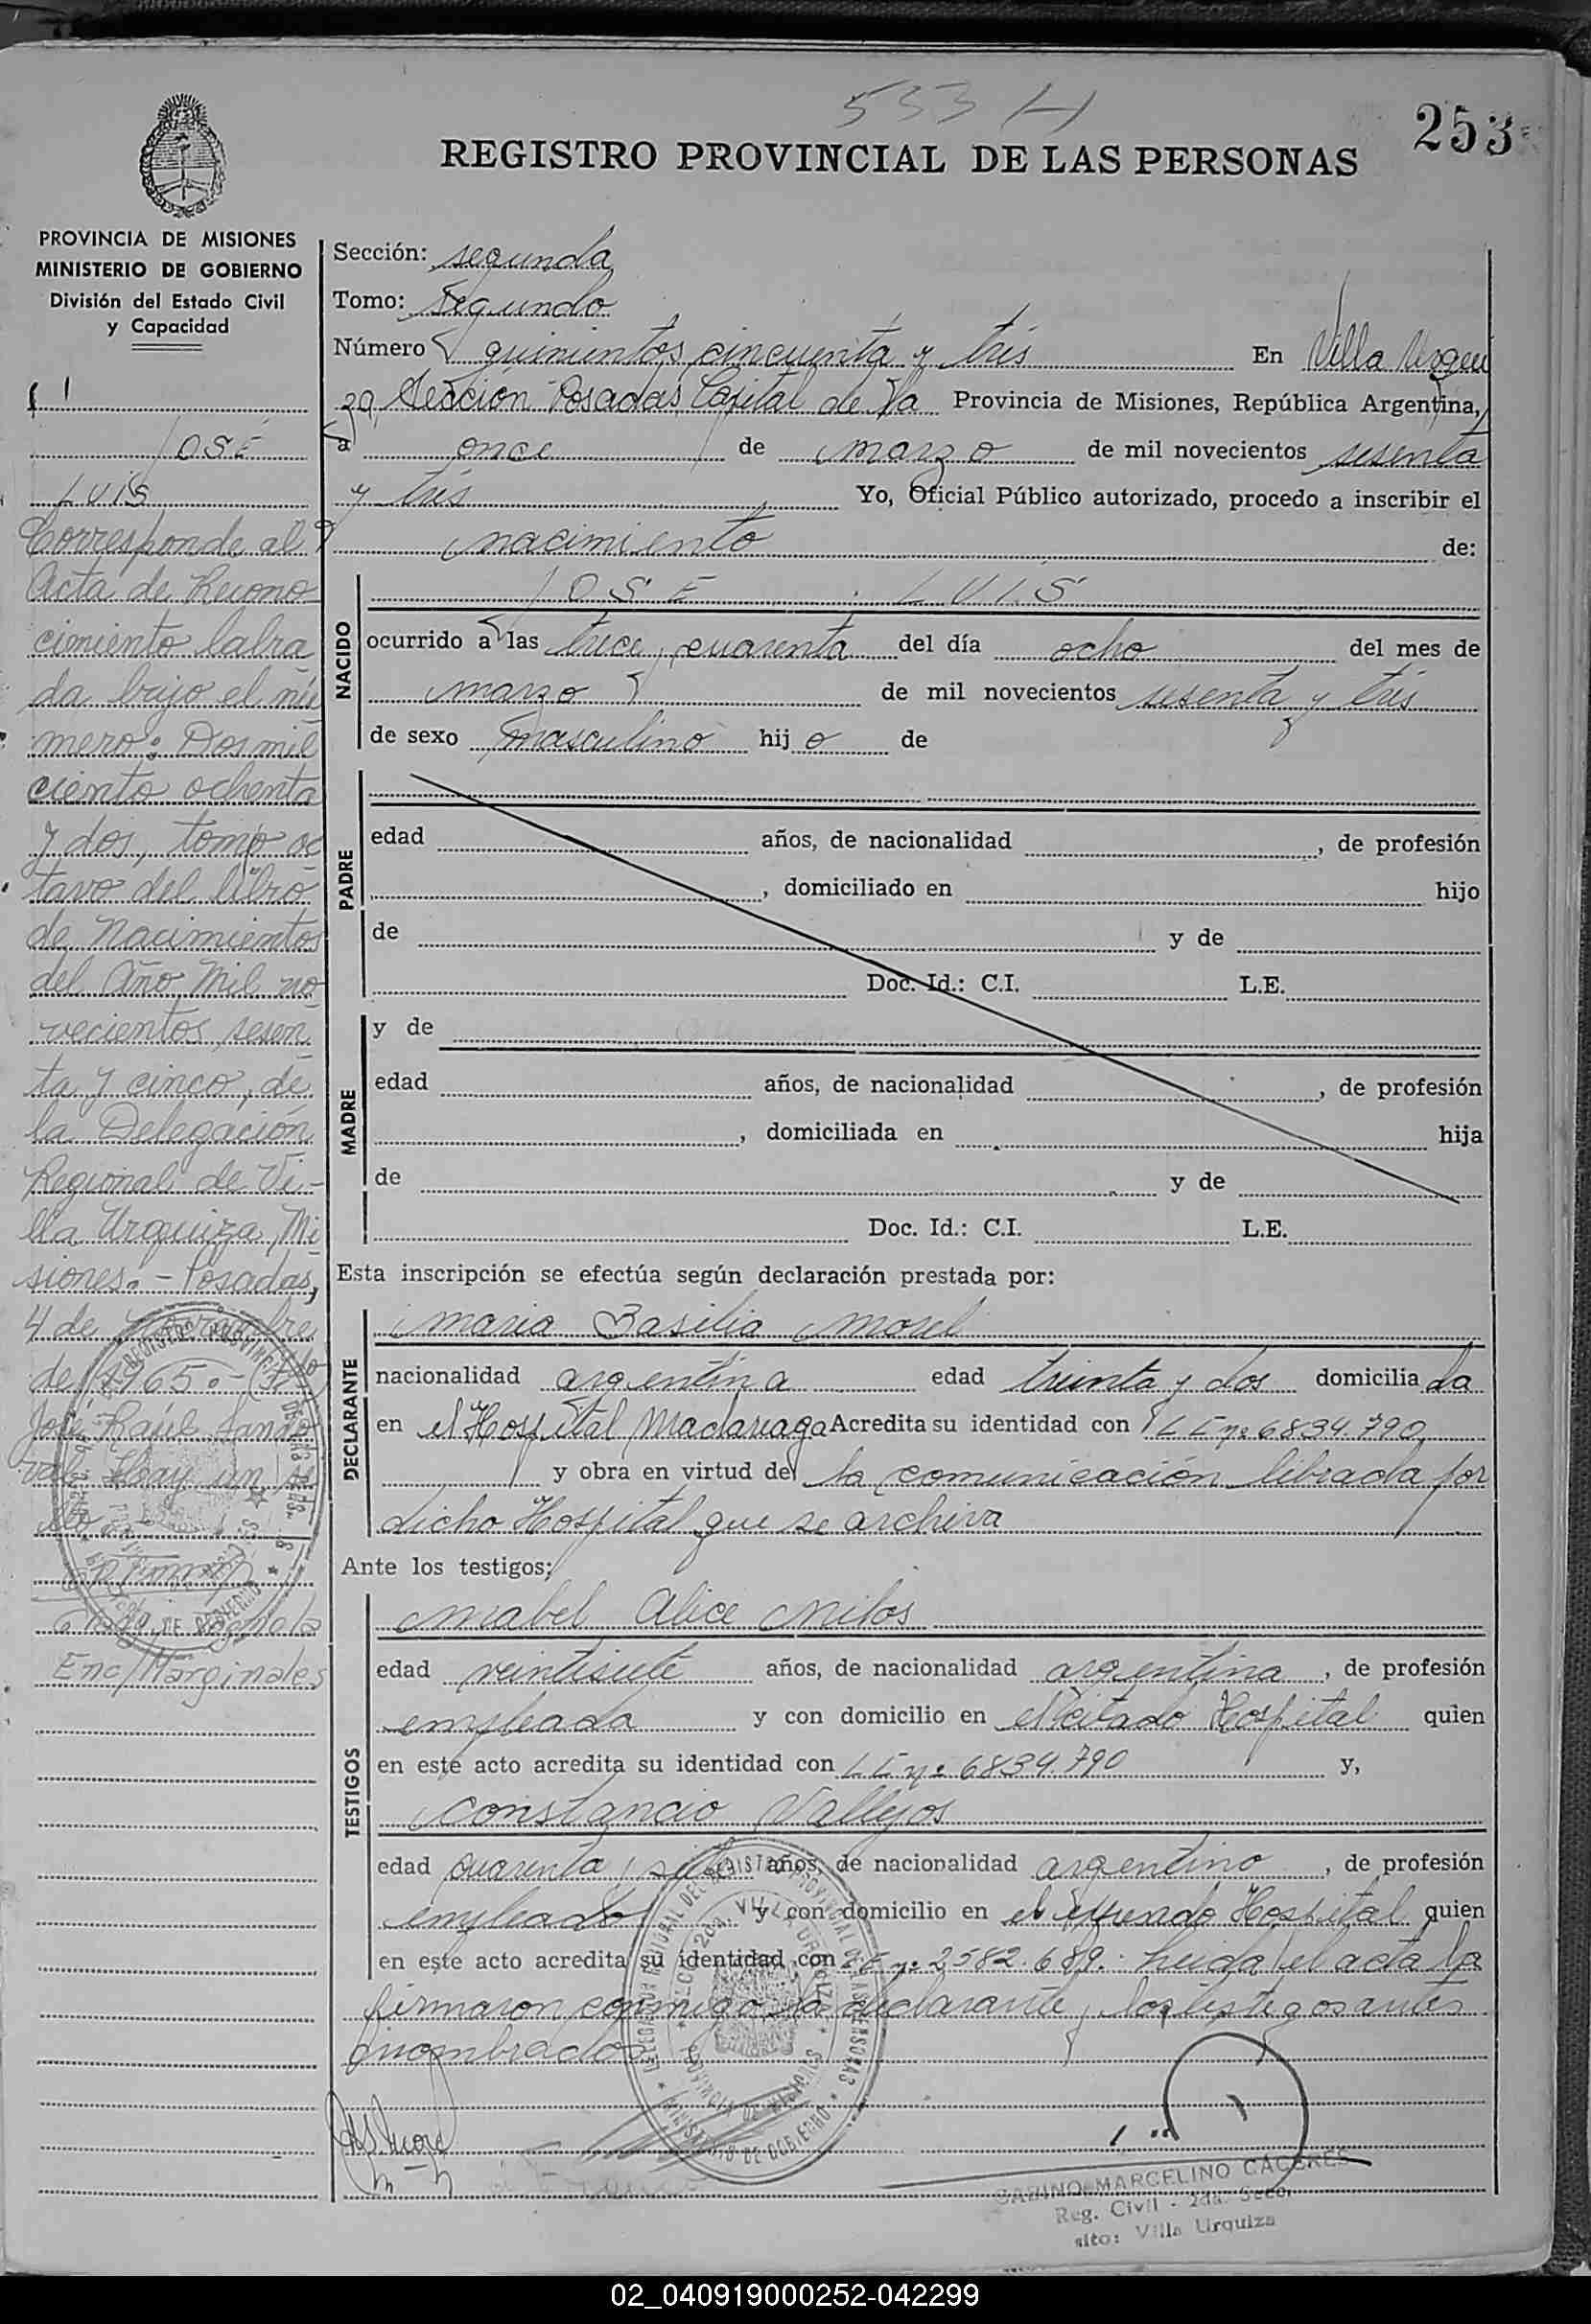 533 H
253
REGISTRO PROVINCIAL DE LAS PERSONAS
PROVINCIA DE MISIONES
MINISTERIO DE GOBIERNO
División del Estado Civil
y Capacidad
JOSÉ
LUIS
Corresponde al
Acta de Recono-
cimiento labra
da bajo el nú
mero: Dos mil
ciento ochenta
y dos, tomo oc
tavo del libro
de Nacimientos
del Año Mil no
vecientos sesen
ta y cinco, de
la Delegación
Regional de Vi-
lla Urquiza, Mi
siones.- Posadas,
4 de
de 1965.-
José Raúl Sando
val. Hay un se
llo.-
Enc/Marginales
Sección: segunda
Tomo: segundo
Número quinientos cincuenta y tres En Villa Urqui
za Sección Posadas Capital de la Provincia de Misiones, República Argentina,
a once de marzo de mil novecientos sesenta
y tres Yo, Oficial Público autorizado, procedo a inscribir el
nacimiento de:
NACIDO
JOSE LUIS
ocurrido a las trece, cuarenta del día ocho del mes de
marzo de mil novecientos sesenta y tres
de sexo masculino hijo de
PADRE
edad años, de nacionalidad , de profesión
, domiciliado en hijo
de y de
Doc. Id.: C.I. L.E.
MADRE
y de
edad años, de nacionalidad , de profesión
, domiciliada en hija
de y de
Doc. Id.: C.I. L.E.
Esta inscripción se efectúa según declaración prestada por:
DECLARANTE
Maria Basilia Morel
nacionalidad argentina edad treinta y dos domiciliada
en el Hospital Madariaga Acredita su identidad con L C nº 6834.790
y obra en virtud de la comunicación librada por
dicho Hospital que se archiva
Ante los testigos;
TESTIGOS
Mabel Alice Milos
edad veintisiete años, de nacionalidad argentina, de profesión
empleada y con domicilio en el citado Hospital quien
en este acto acredita su identidad con L C nº 6834.790 y,
Constancio Vallejos
edad cuarenta y siete años, de nacionalidad argentino, de profesión
empleado y con domicilio en el Hospital quien
en este acto acredita su identidad con nº 2582.689. Leida el acta la
firmaron conmigo la declarante y los testigos antes
nombrados
DELEGACION REGIONAL DEL REGISTRO PROVINCIAL DE LAS PERSONAS
VILLA URQUIZA
PROVINCIA DE MISIONES
MINISTERIO DE GOBIERNO
MARCELINO CACERES
Reg. Civil - 2da. Secc.
sito: Villa Urquiza
02_040919000252-042299